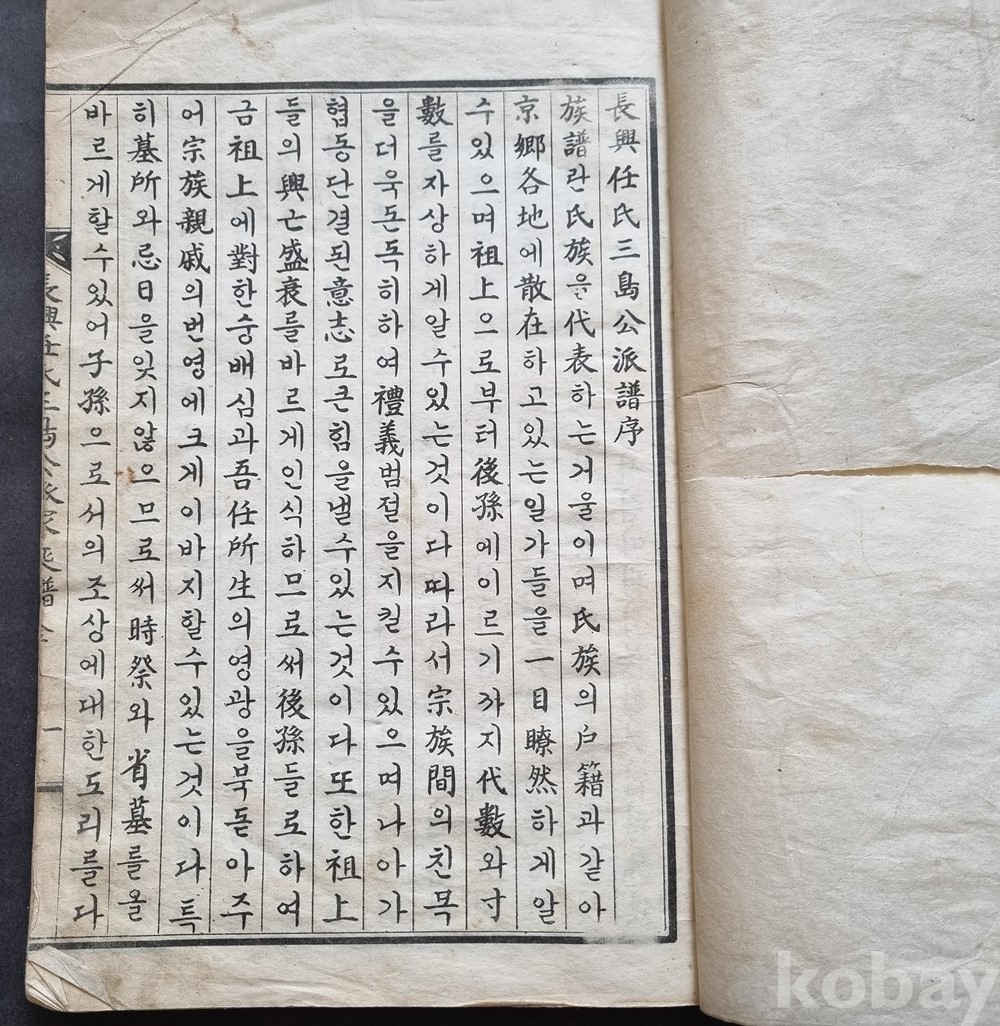 長興任氏三島公派譜序
族譜란氏族을代表하는거울이며氏族의戶籍과같아
京鄕各地에散在하고있는일가들을一目瞭然하게알
수있으며祖上으로부터後孫에이르기까지代數와寸
數를자상하게알수있는것이다따라서宗族間의친목
을더욱돈독히하여禮義범절을지킬수있으며나아가
협동단결된意志로큰힘을낼수있는것이다또한祖上
들의興亡盛衰를바르게인식하므로써後孫들로하여
금祖上에對한숭배심과吾任所生의영광을북돋아주
어宗族親戚의번영에크게이바지할수있는것이다특
히墓所와忌日을잊지않으므로써時祭와省墓를올
바르게할수있어子孫으로서의조상에대한도리를다
長興任氏三島公派家乘譜全
一
kobay